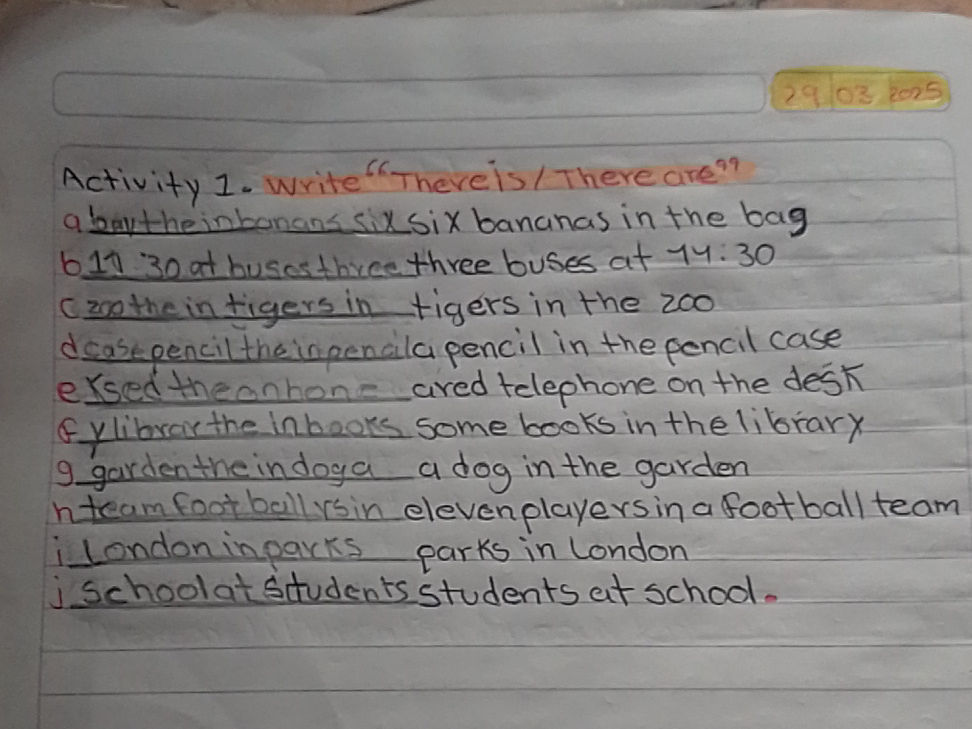 29 03 2025
Activity 1. Write "There is / There are"
a bay the in banans six six bananas in the bag
b 11:30 at buses three three buses at 11:30
c zoo the in tigers in tigers in the zoo
d case pencil the in pencil a pencil in the pencil case
e the a red telephone on the desk
f y librar the in books some books in the library
g garden the in dog a a dog in the garden
h team foot ball rs in eleven players in a football team
i London in parks parks in London
j school at students students at school.